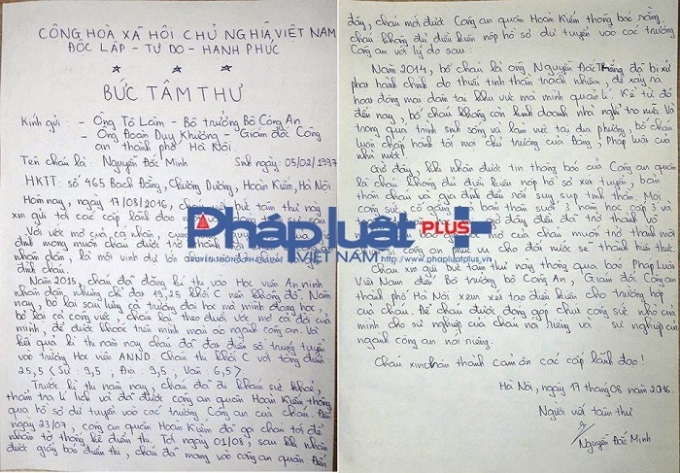 CỘNG HÒA XÃ HỘI CHỦ NGHĨA VIỆT NAM
ĐỘC LẬP - TỰ DO - HẠNH PHÚC
BỨC TÂM THƯ
Kính gửi: - Ông Tô Lâm - Bộ trưởng Bộ Công An
- Ông Đoàn Duy Khương - Giám đốc Công
an thành phố Hà Nội
Tên cháu là: Nguyễn Đức Minh Sinh ngày: 05/02/1997
HKTT: số 465 Bạch Đằng, Chương Dương, Hoàn Kiếm, Hà Nội
Hôm nay, ngày 17/08/2016, cháu viết bút tâm thư này
xin gửi tới các cấp lãnh đạo
Với ước mơ của cá nhân
đình mong muốn cháu được trở thành
nhân dân, là một vinh dự lớn
đình cháu.
Năm 2015, cháu đã đăng kí thi vào Học viện An ninh
nhân dân nhưng chỉ đạt 19,25 khối C nên không đỗ. Năm
nay, bỏ lại sau lưng cả trường đại học mà mình đang học,
bỏ lại cả công việc, cháu quyết tâm theo đuổi ước mơ của
mình, để được khoác trên mình màu áo ngành công an. Và
kết quả kì thi năm nay cháu đã đạt điểm số trúng tuyển
vào trường Học viện ANND. Cháu thi khối C với tổng điểm
25,5 (Sử: 9,5; Địa: 9,5; Văn: 6,5)
Trước kì thi năm nay, cháu đã đi khám sức khỏe,
thẩm tra lí lịch và đã được công an quận Hoàn Kiếm thông
qua hồ sơ dự tuyển vào các trường Công an của cháu. Đến
ngày 23/07, công an quận Hoàn Kiếm đã gọi cháu tới để
nhận tờ thống kê điểm thi. Tới ngày 01/08, sau khi nhận
được giấy báo điểm thi, cháu đã mang vào công an quận. Đến
đây, cháu mới được Công an quận Hoàn Kiếm thông báo rằng:
cháu không đủ điều kiện nộp hồ sơ dự tuyển vào các trường
Công an với lý do sau:
Năm 2014, bố cháu là ông Nguyễn Đức Thắng đã bị xử
phạt hành chính do thiếu tinh thần trách nhiệm, để xảy ra
hoạt động mại dâm tại khu vực mà mình quản lí. Kể từ đó
đến nay, bố cháu không còn kinh doanh nhà nghỉ trọ nữa. Và
trong quá trình sinh sống và làm việc tại địa phương, bố cháu
luôn chấp hành tốt mọi chủ trương của Đảng, Pháp luật của
nhà nước.
Giờ đây, khi nhận được tin thông báo của Công an quận
là cháu không đủ điều kiện nộp hồ sơ xét tuyển, bản
thân cháu và gia đình đều rơi suy sụp tinh thần. Mọi
công sức cố gắng của bản thân cháu
giờ đây đều đã trở thành vô
của cháu muốn trở thành một
công an phục vụ cho đất nước sẽ thành hiện thực
Cháu xin gửi bức tâm thư này thông qua báo Pháp luật
Việt Nam đến: Bộ trưởng Bộ Công An, Giám đốc Công an
thành phố Hà Nội xem xét tạo điều kiện cho trường hợp
của cháu. Để cháu được đóng góp chút công sức nhỏ của
mình cho sự nghiệp của cháu nói riêng và sự nghiệp của
ngành công an nói chung.
Cháu xin chân thành cảm ơn các cấp lãnh đạo!
Hà Nội, ngày 17 tháng 08 năm 2016.
Người viết tâm thư
Nguyễn Đức Minh
Pháp luật PLUS+
VIỆT NAM
www.phapluatplus.vn